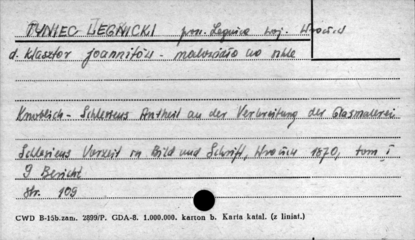 TYNIEC LEGNICKI pow. Legnica woj. Wrocław
d. Klasztor joannitów - malowidło na szkle
Knoblich - Schlesiens Antheil an der Verbreitung der Glasmalerei
Schlesiens Vorzeit in Bild und Schrift, Wrocław 1870, tom I
9 Bericht
str. 109
CWD B-15b.zam. 2899/P. GDA-8. 1.000.000. karton b. Karta katal. (z liniat.)